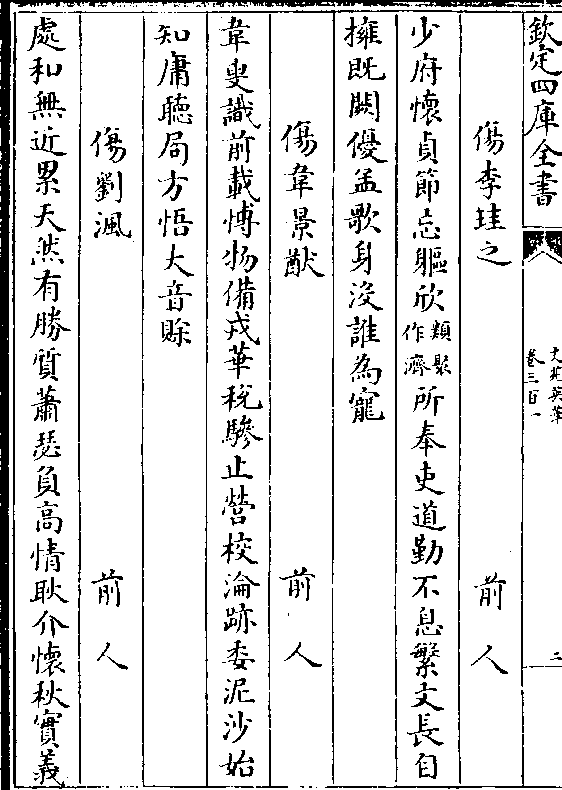 欽定四庫全書
文苑英華
卷三百一
二
傷李珪之 前人
少府懷貞節忘軀欣類聚作濟所奉吏道勤不息繁文長自
擁既闕優孟歌身沒誰為寵
傷韋景猷 前人
韋叟識前載博物備戎華稅驂止營校淪跡委泥沙始
知庸聽局方悟大音賒
傷劉渢 前人
處和無近累天然有勝質蕭瑟負高情耿介懷秋實義